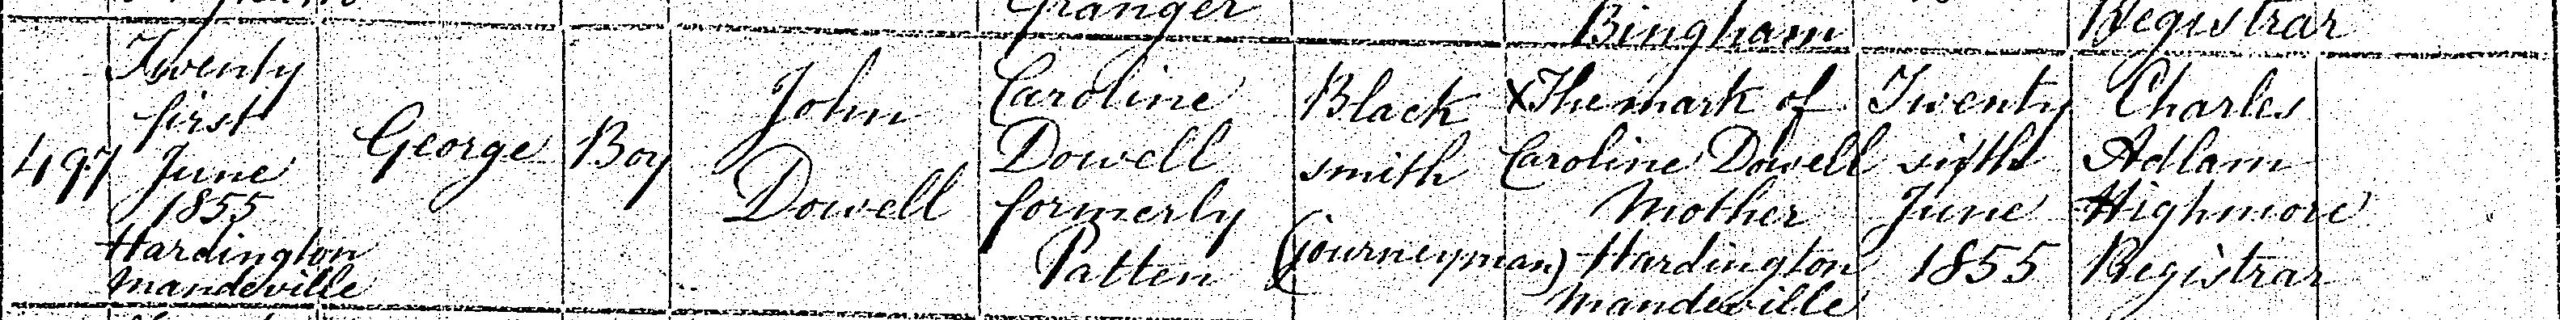 Granger
Bingham
Registrar
497
Twenty
first
June
1855
Hardington
Mandeville
George
Boy
John
Dowell
Caroline
Dowell
formerly
Patten
Black
smith
(journeyman)
X The mark of
Caroline Dowell
Mother
Hardington
Mandeville
Twenty
sixth
June
1855
Charles
Adlam
Highmore
Registrar